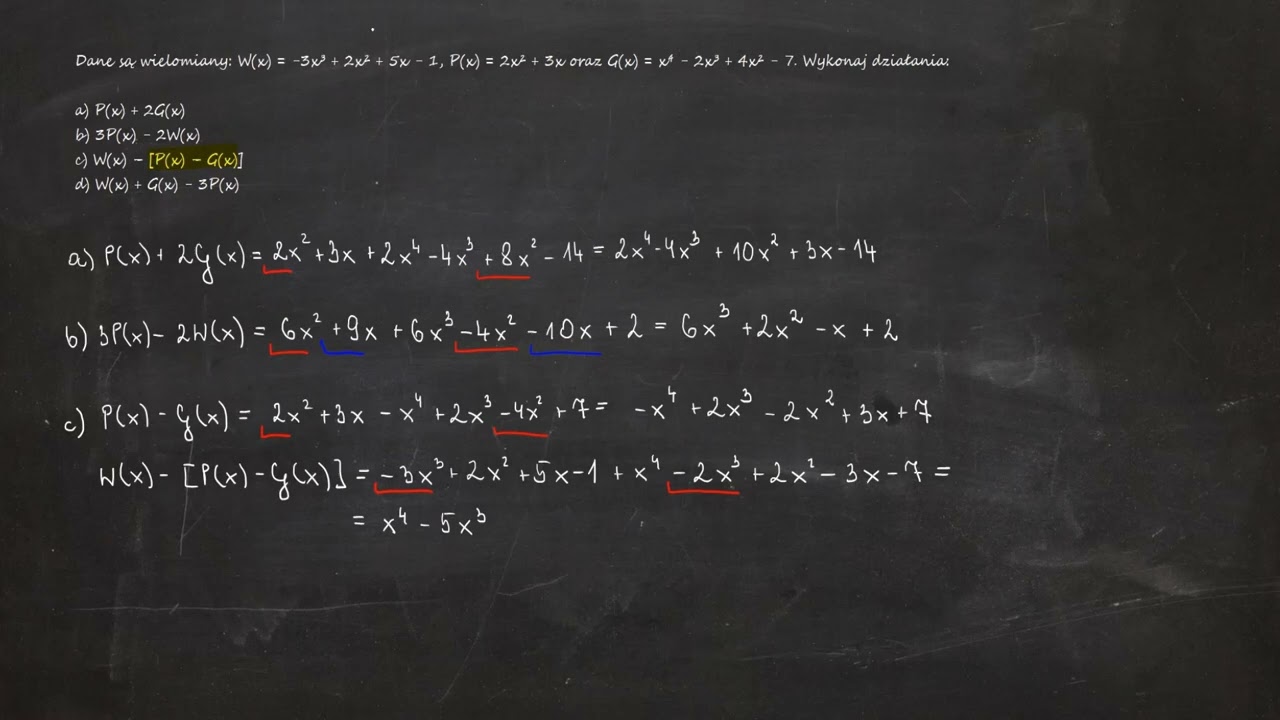 Dane są wielomiany: W(x) = -3x³ + 2x² + 5x - 1, P(x) = 2x² + 3x oraz G(x) = x⁴ - 2x³ + 4x² - 7. Wykonaj działania:
a) P(x) + 2G(x)
b) 3P(x) - 2W(x)
c) W(x) - [P(x) - G(x)]
d) W(x) + G(x) - 3P(x)
a) P(x) + 2G(x) = 2x² + 3x + 2x⁴ - 4x³ + 8x² - 14 = 2x⁴ - 4x³ + 10x² + 3x - 14
b) 3P(x) - 2W(x) = 6x² + 9x + 6x³ - 4x² - 10x + 2 = 6x³ + 2x² - x + 2
c) P(x) - G(x) = 2x² + 3x - x⁴ + 2x³ - 4x² + 7 = -x⁴ + 2x³ - 2x² + 3x + 7
W(x) - [P(x) - G(x)] = -3x³ + 2x² + 5x - 1 + x⁴ - 2x³ + 2x² - 3x - 7 =
= x⁴ - 5x³